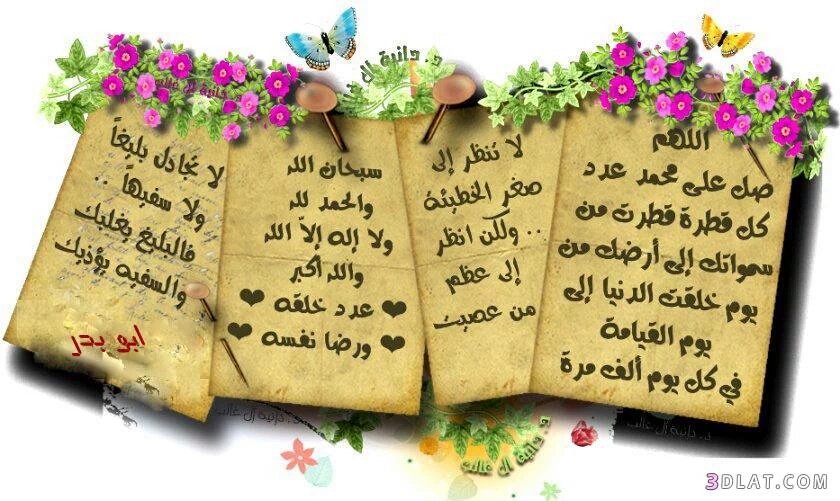 اللهم
صل على محمد عدد
كل قطرة قطرت من
سمواتك إلى أرضك من
يوم خلقت الدنيا إلى
يوم القيامة
في كل يوم ألف مرة
لا تنظر إلى
صغر الخطيئة
.. ولكن انظر
إلى عظم
من عصيت
سبحان الله
والحمد لله
ولا إله إلاّ الله
والله أكبر
❤ عدد خلقه ❤
❤ ورضا نفسه ❤
لا تجادل بليغاً
ولا سفيها ..
فالبليغ يغلبك
والسفيه يؤذيك
ابو بدر
د. دانية آل غالب
د. دانية آل غالب
د. دانية آل غالب
3DLAT.COM